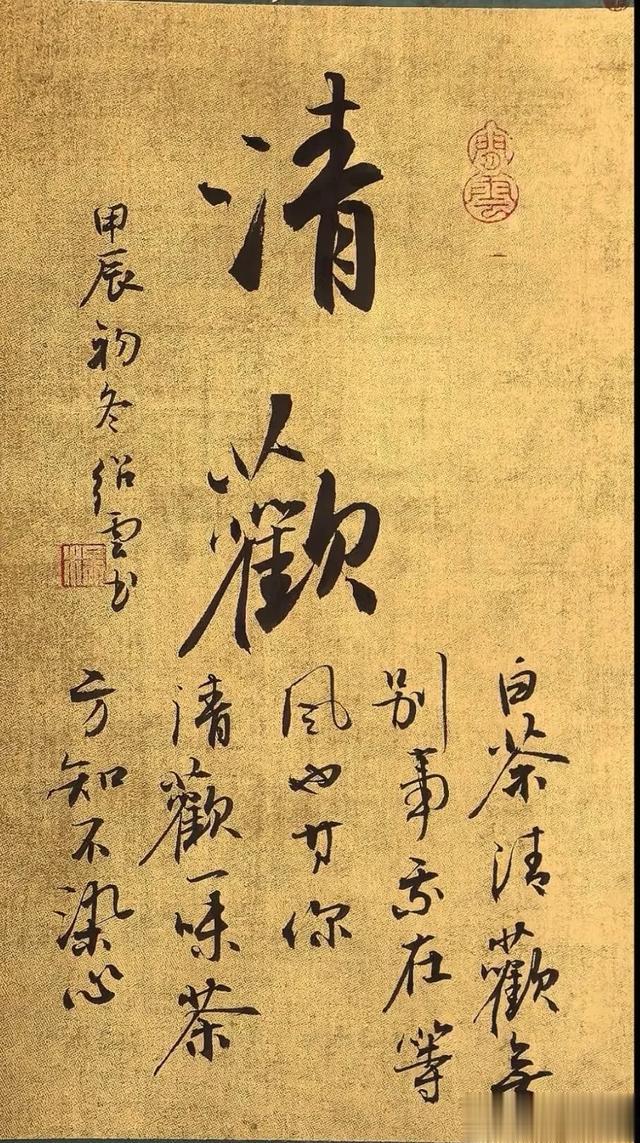 清歡
白茶清歡無
別事我在等
風也等你
清歡一味茶
方知不染心
甲辰初冬紹雲书